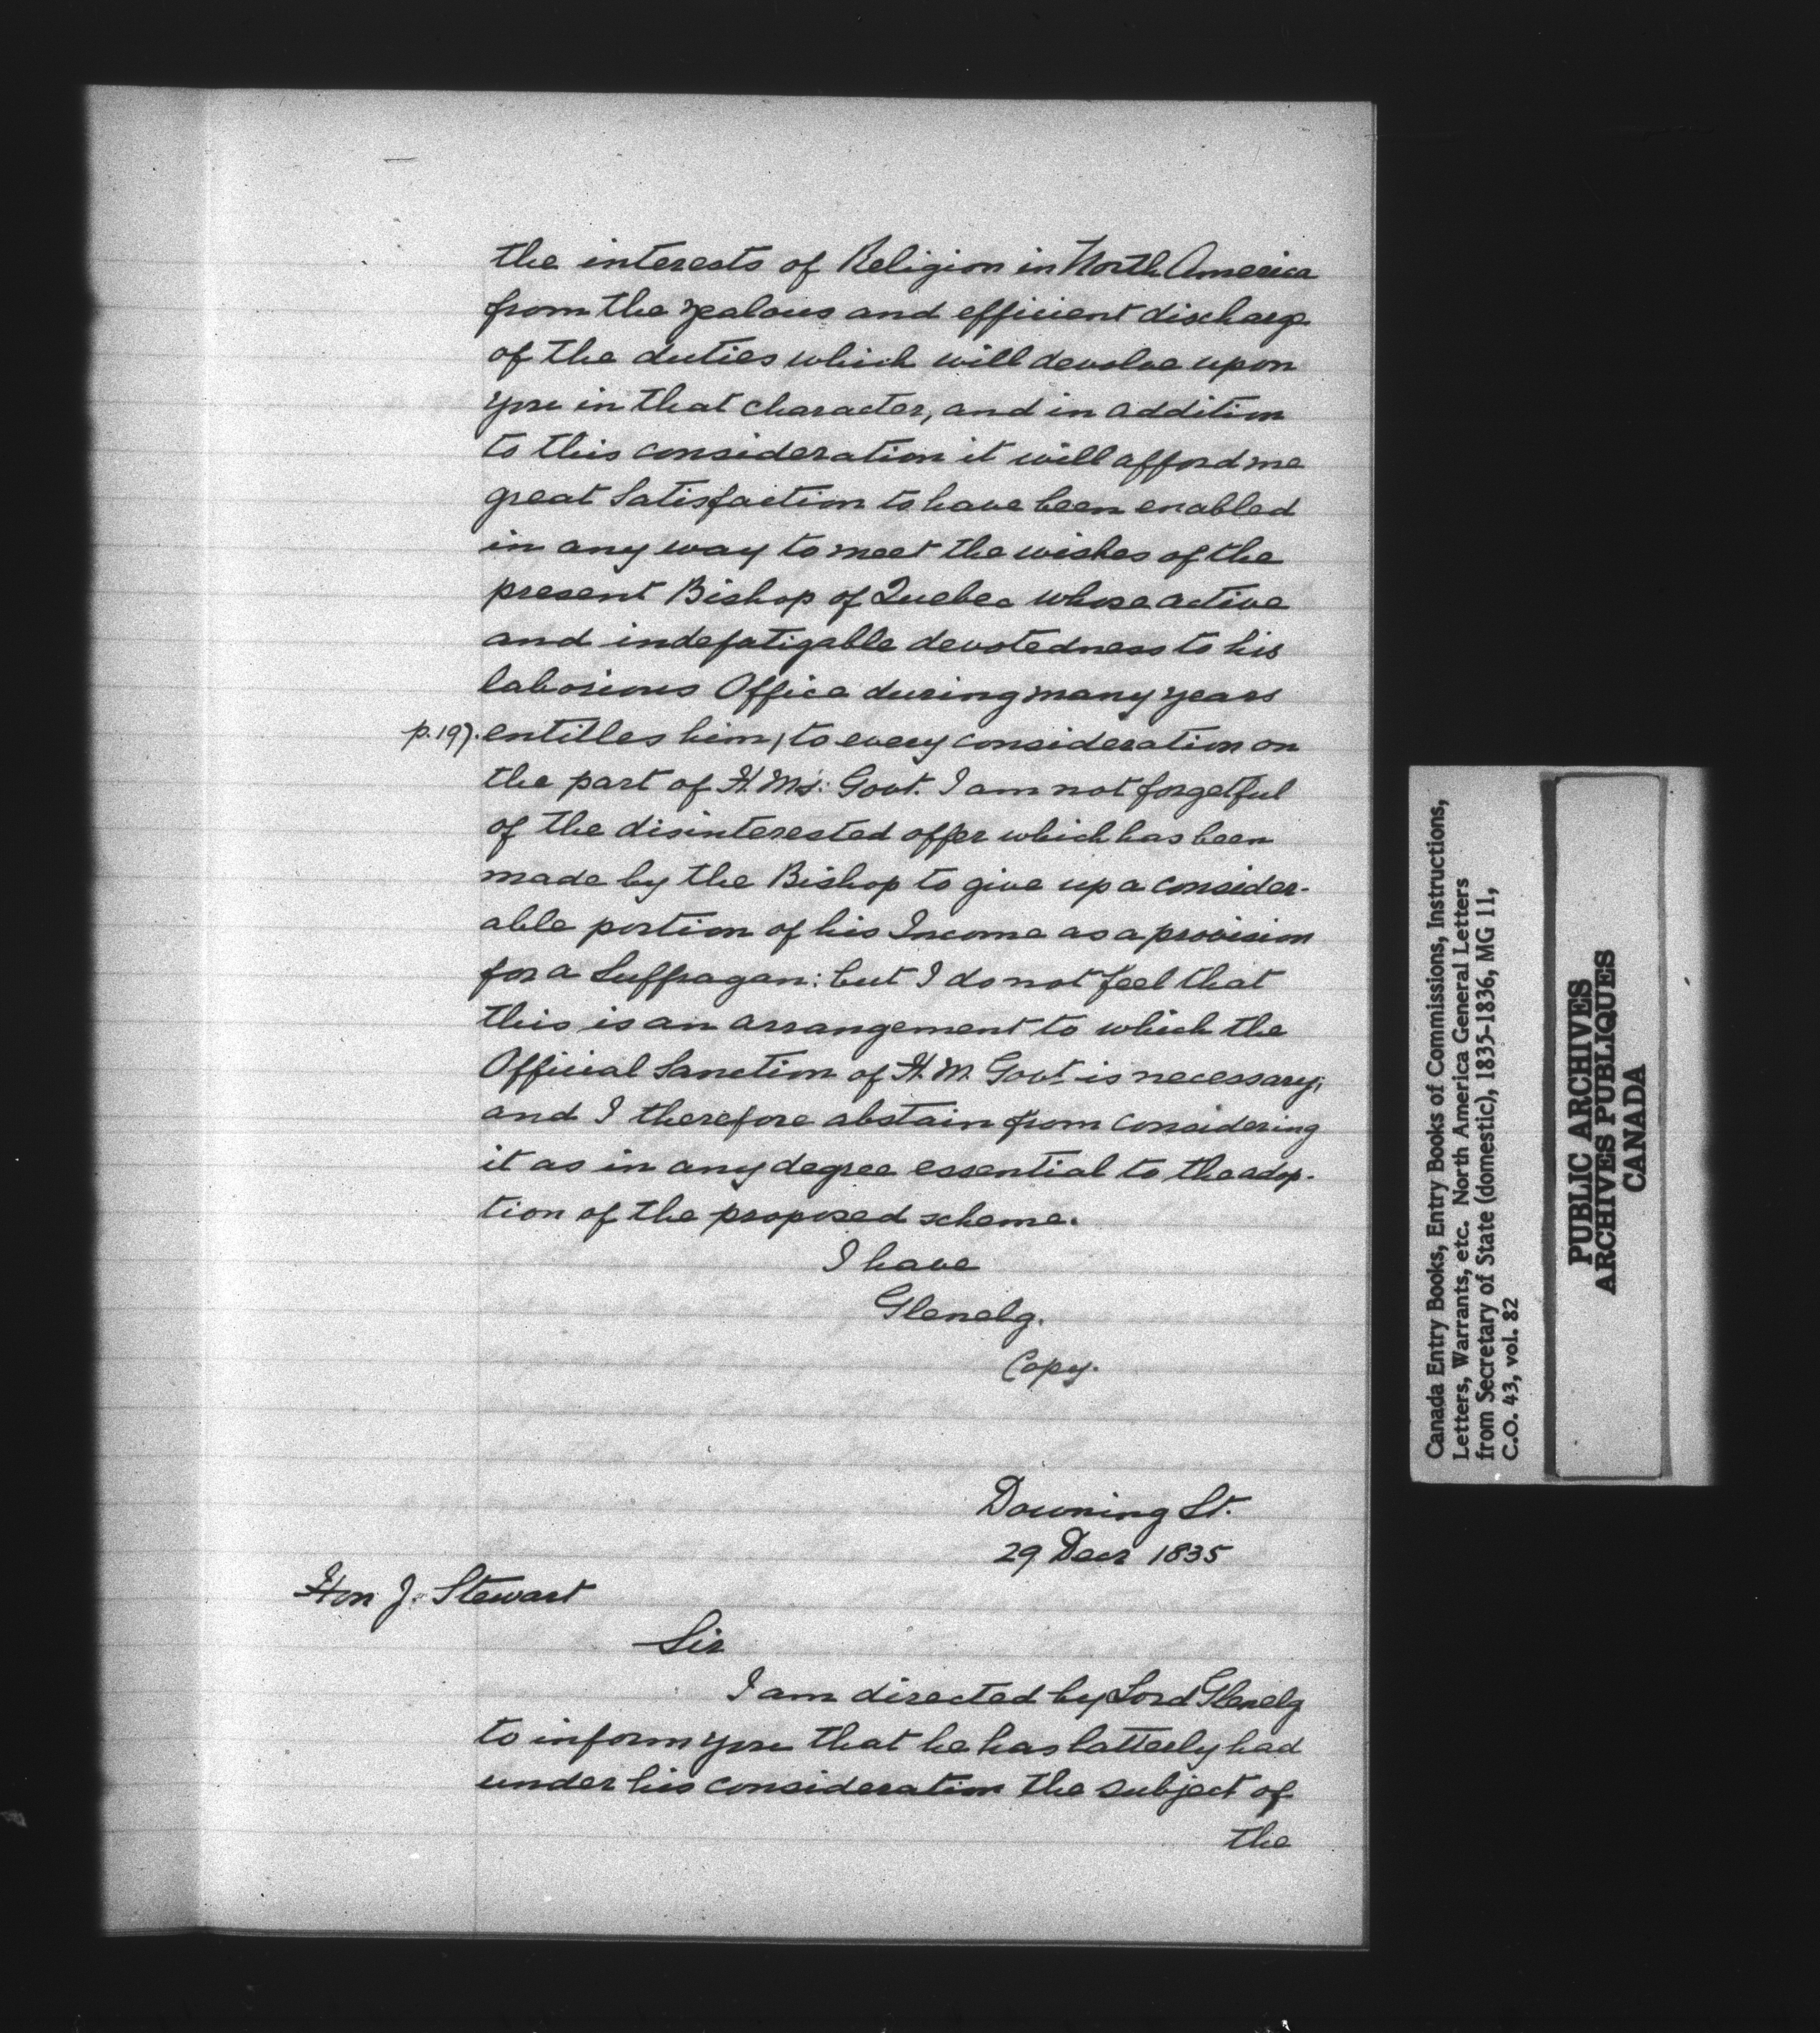 the interests of Religion in North America
from the zealous and efficient discharge
of the duties which will devolve upon
you in that character, and in addition
to this consideration it will afford me
great Satisfaction to have been enabled
in any way to meet the wishes of the
present Bishop of Quebec whose active
and indefatigable devotedness to his
laborious Office during many years
p.197. entitles him, to every consideration on
the part of H. Ms: Govt. I am not forgetful
of the disinterested offer which has been
made by the Bishop to give up a consider-
able portion of his Income as a provision
for a Suffragan: but I do not feel that
this is an arrangement to which the
Official Sanction of H. M. Govt. is necessary;
and I therefore abstain from considering
it as in any degree essential to the adop-
tion of the proposed scheme.
I have
Glenelg.
Copy.
Downing St.
29 Decr 1835
Hon J. Stewart
Sir
I am directed by Lord Glenelg
to inform you that he has latterly had
under his consideration the subject of
the
Canada Entry Books, Entry Books of Commissions, Instructions,
Letters, Warrants, etc. North America General Letters
from Secretary of State (domestic), 1835-1836, MG 11,
C.O. 43, vol. 82
PUBLIC ARCHIVES
ARCHIVES PUBLIQUES
CANADA